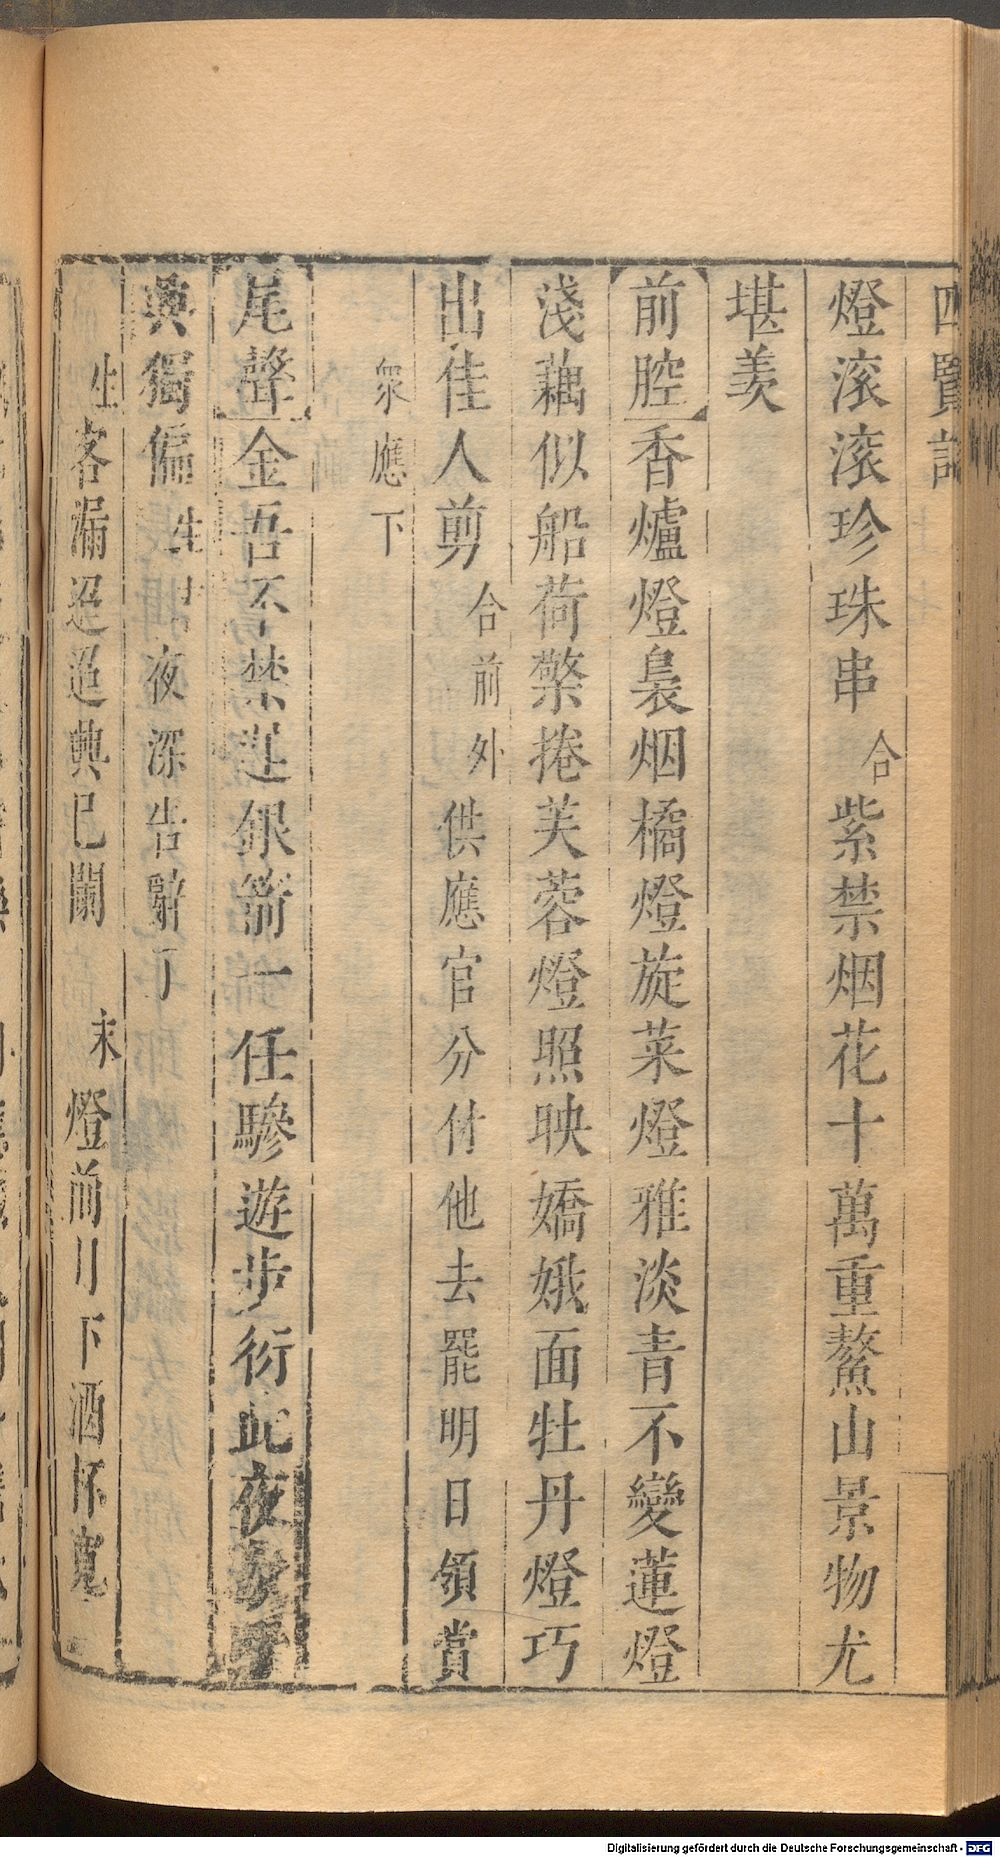 四賢記
燈滾滾珍珠串合紫禁烟花十萬重鰲山景物尤
堪羡
前腔香爐燈裊烟橘燈旋菜燈雅淡青不變蓮燈
淺藕似船荷檠捲芙蓉燈照映嬌娥面牡丹燈巧
出佳人剪合前外供應官分付他去罷明日領賞
衆應下
尾聲金吾不禁莲銀箭一任驂遊步衍此夜
興獨偏生夜深告辭了
生客漏迢迢興已闌 末燈前月下酒杯寬
Digitalisierung gefördert durch die Deutsche Forschungsgemeinschaft - DFG